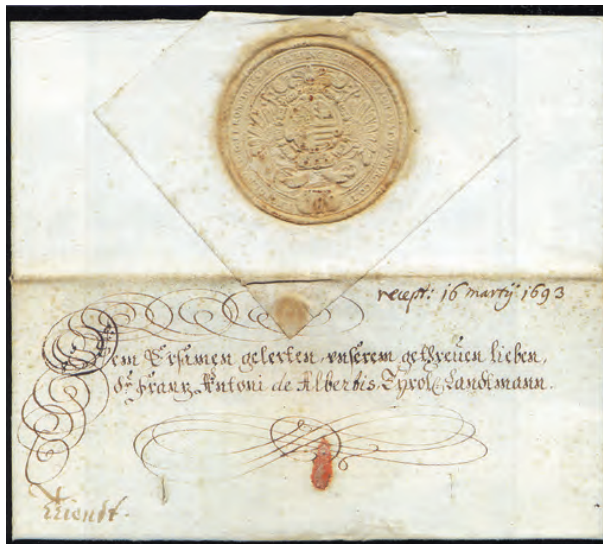 recept: 16 martÿ 1693
Dem Ersamen gelerten, vnserem gethreüen lieben,
Dr Franz Antoni de Albertis, Tyrol: Landtmann.
Triendt.